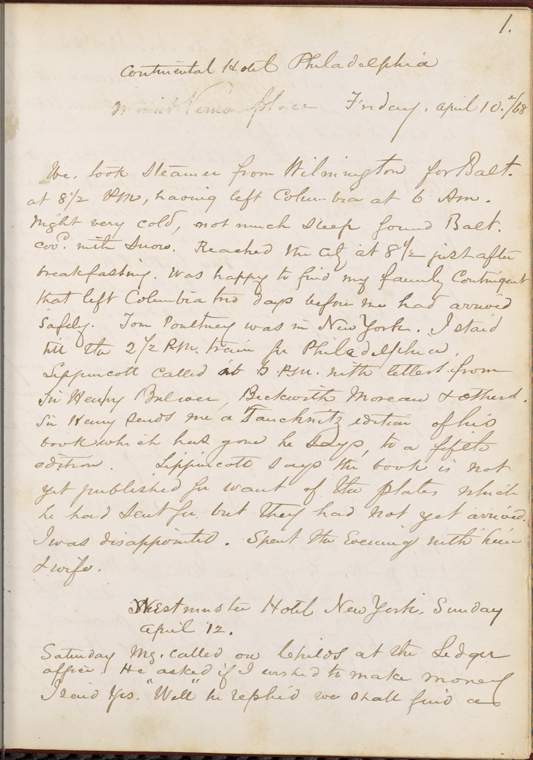 1.
Continental Hotel Philadelphia
Mount Vernon place Friday, april 10. /68
We took Steamer from Wilmington for Balt.
at 8 1/2 PM, having left Columbia at 6 Am.
Night very cold, not much sleep found Balt.
cov.d with Snow. Reached the city at 8 1/2 just after
breakfasting. Was happy to find my family Contingent
that left Columbia two days before me had arrived
Safely. Tom Poultney was in New York. I staid
till the 2 1/2 P.M. train for Philadelphia.
Lippincott called at 6 P.M. with letters from
Sir Henry Bulwer, Beckwith Moreau & others.
Sir Henry sends me a Tauchnitz edition of his
book which has gone he says, to a fifth
edition. Lippincott says the book is not
yet published for want of the plates which
he had sent for but they had not yet arrived.
I was disappointed. Spent the Evening with him
& wife.
Westminster Hotel New York, Sunday
April 12.
Saturday Mg. called on Childs at the Ledger
office. He asked if I wished to make money
I said Yes. "Well" he replied we shall find a